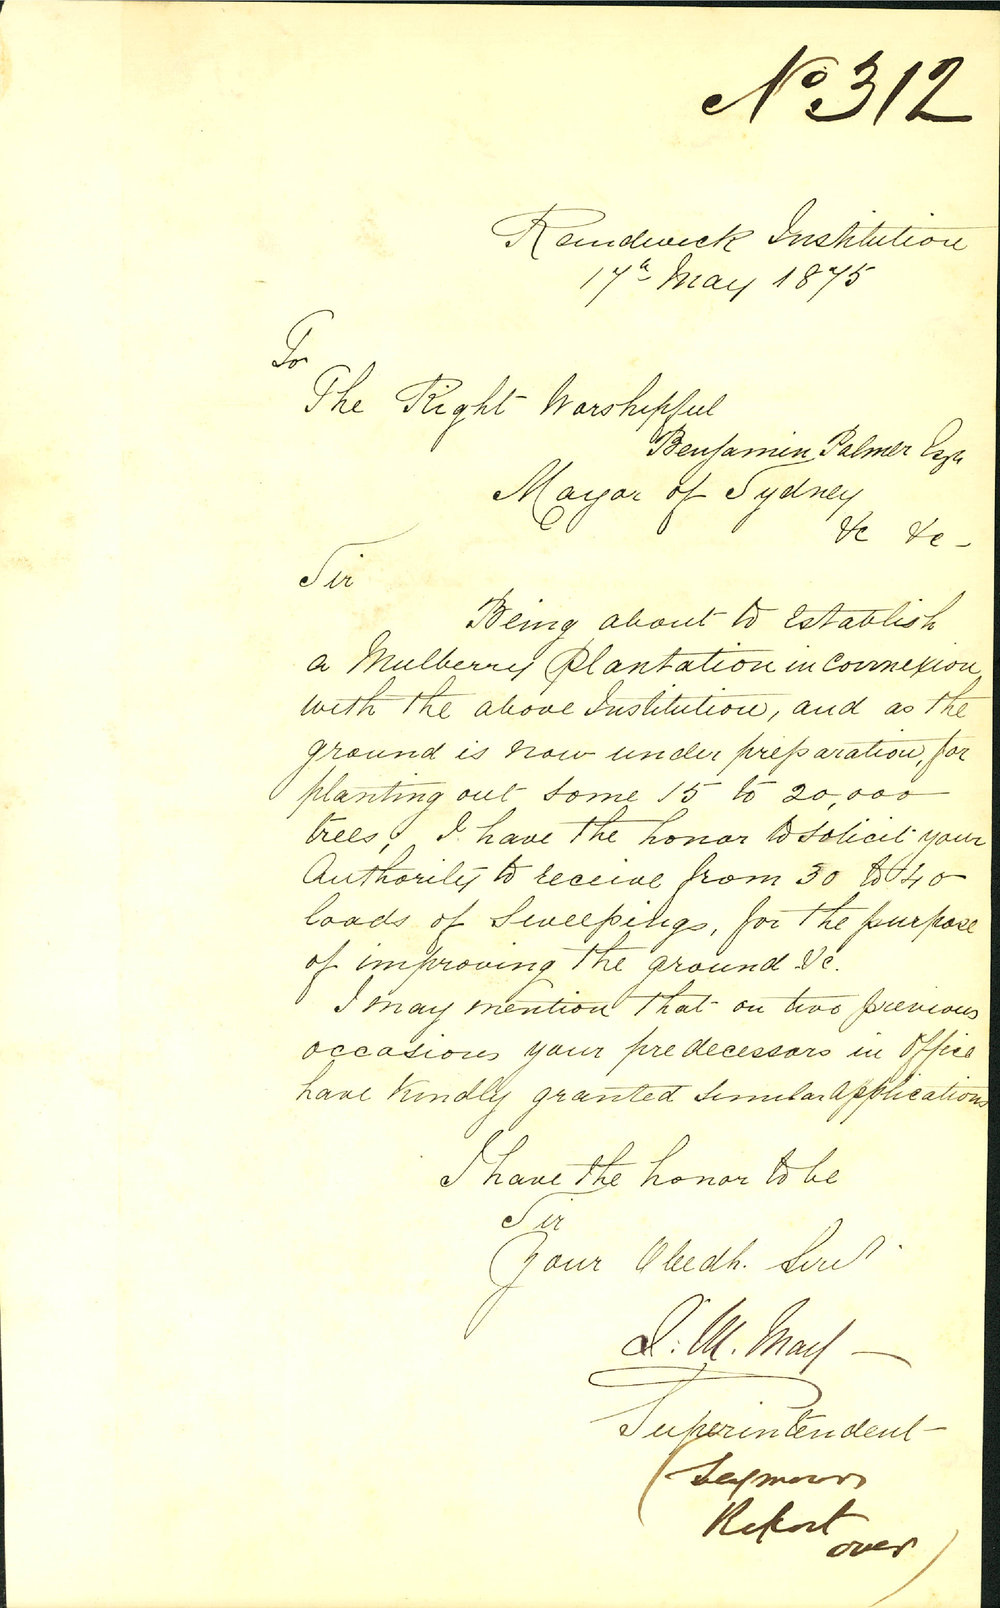 No. 312
Randwick Institution
17th May 1875
To
The Right Worshipful
Benjamin Palmer Esqr
Mayor of Sydney
&c &c -
Sir
Being about to establish
a Mulberry Plantation in Connexion
with the above Institution, and as the
ground is now under preparation, for
planting out some 15 to 20,000
trees, I have the honor to solicit your
Authority to receive from 30 to 40
loads of Sweepings, for the purpose
of improving the ground &c.
I may mention that on two previous
occasions your predecessors in Office
have kindly granted similar applications
I have the honor to be
Sir
Your Obedt. Servt.
J. M. May
Superintendent
(Seymours
Report
over)